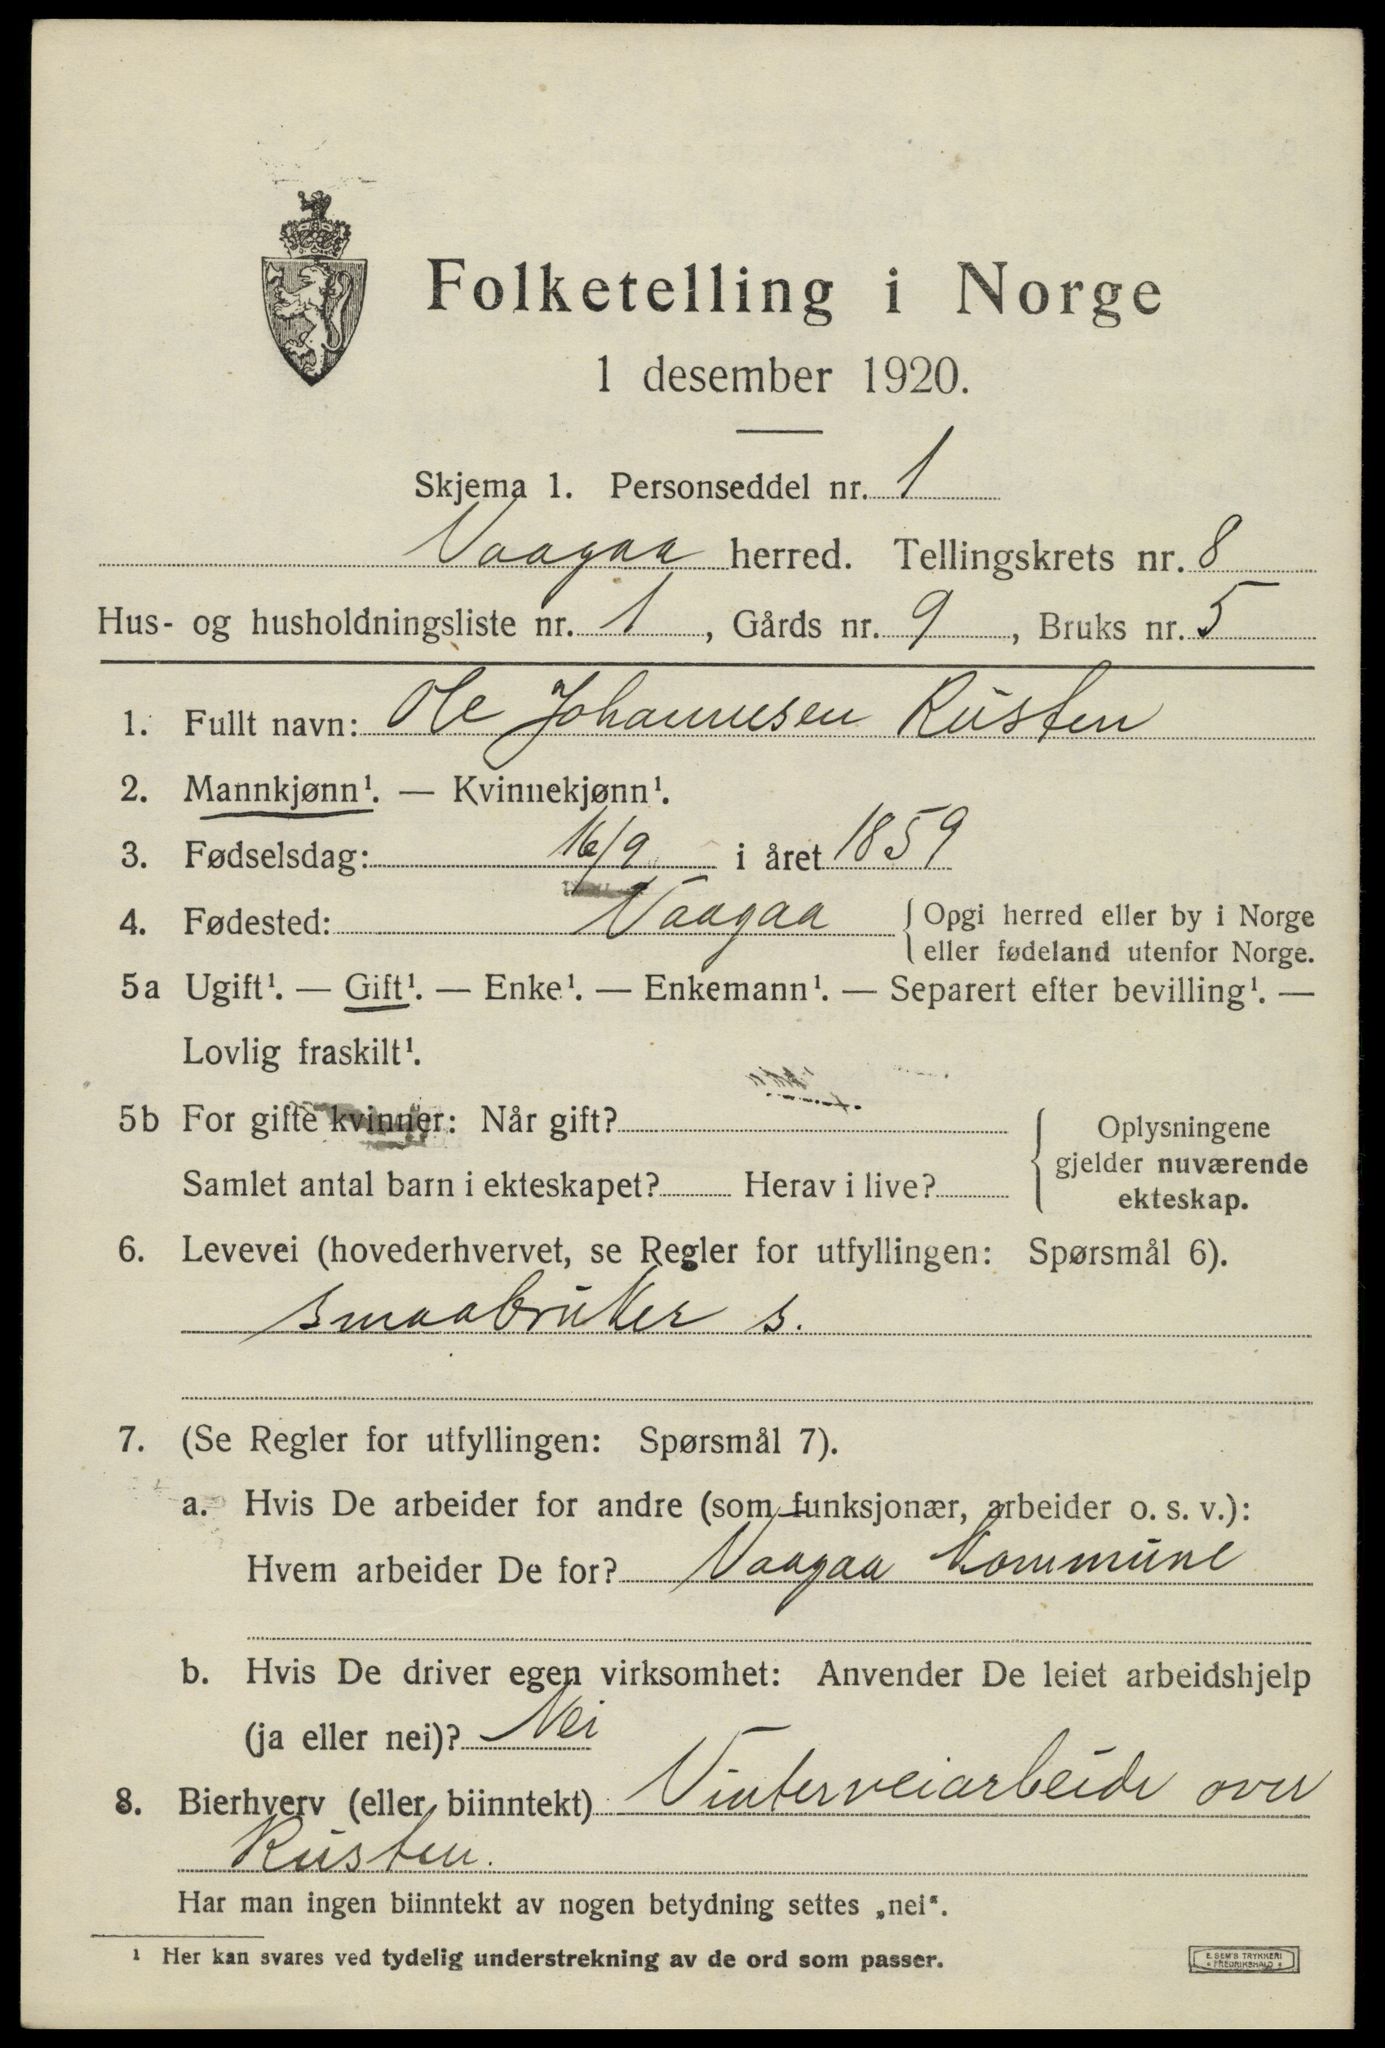 Folketelling i Norge
1 desember 1920.
Skjema 1. Personseddel nr. 1
Vaagaa herred. Tellingskrets nr. 8
Hus- og husholdningsliste nr. 1, Gårds nr. 9, Bruks nr. 5
1. Fullt navn: Ole Johannesen Rusten
2. Mannkjønn¹. — Kvinnekjønn¹.
3. Fødselsdag: 16/9 i året 1859
4. Fødested: Vaagaa { Opgi herred eller by i Norge
eller fødeland utenfor Norge.
5a Ugift¹. — Gift¹. — Enke¹. — Enkemann¹. — Separert efter bevilling¹. —
Lovlig fraskilt¹.
5b For gifte kvinner: Når gift?
Samlet antal barn i ekteskapet? Herav i live?
Oplysningene
gjelder nuværende
ekteskap.
6. Levevei (hovederhvervet, se Regler for utfyllingen: Spørsmål 6).
smaabruker s.
7. (Se Regler for utfyllingen: Spørsmål 7).
a. Hvis De arbeider for andre (som funksjonær, arbeider o. s. v.):
Hvem arbeider De for? Vaagaa kommune
b. Hvis De driver egen virksomhet: Anvender De leiet arbeidshjelp
(ja eller nei)? Nei
8. Bierhverv (eller biinntekt) Vinterveiarbeide over
Rusten.
Har man ingen biinntekt av nogen betydning settes „nei“.
¹ Her kan svares ved tydelig understrekning av de ord som passer.
E. SEM'S TRYKKERI
FREDRIKSHALD